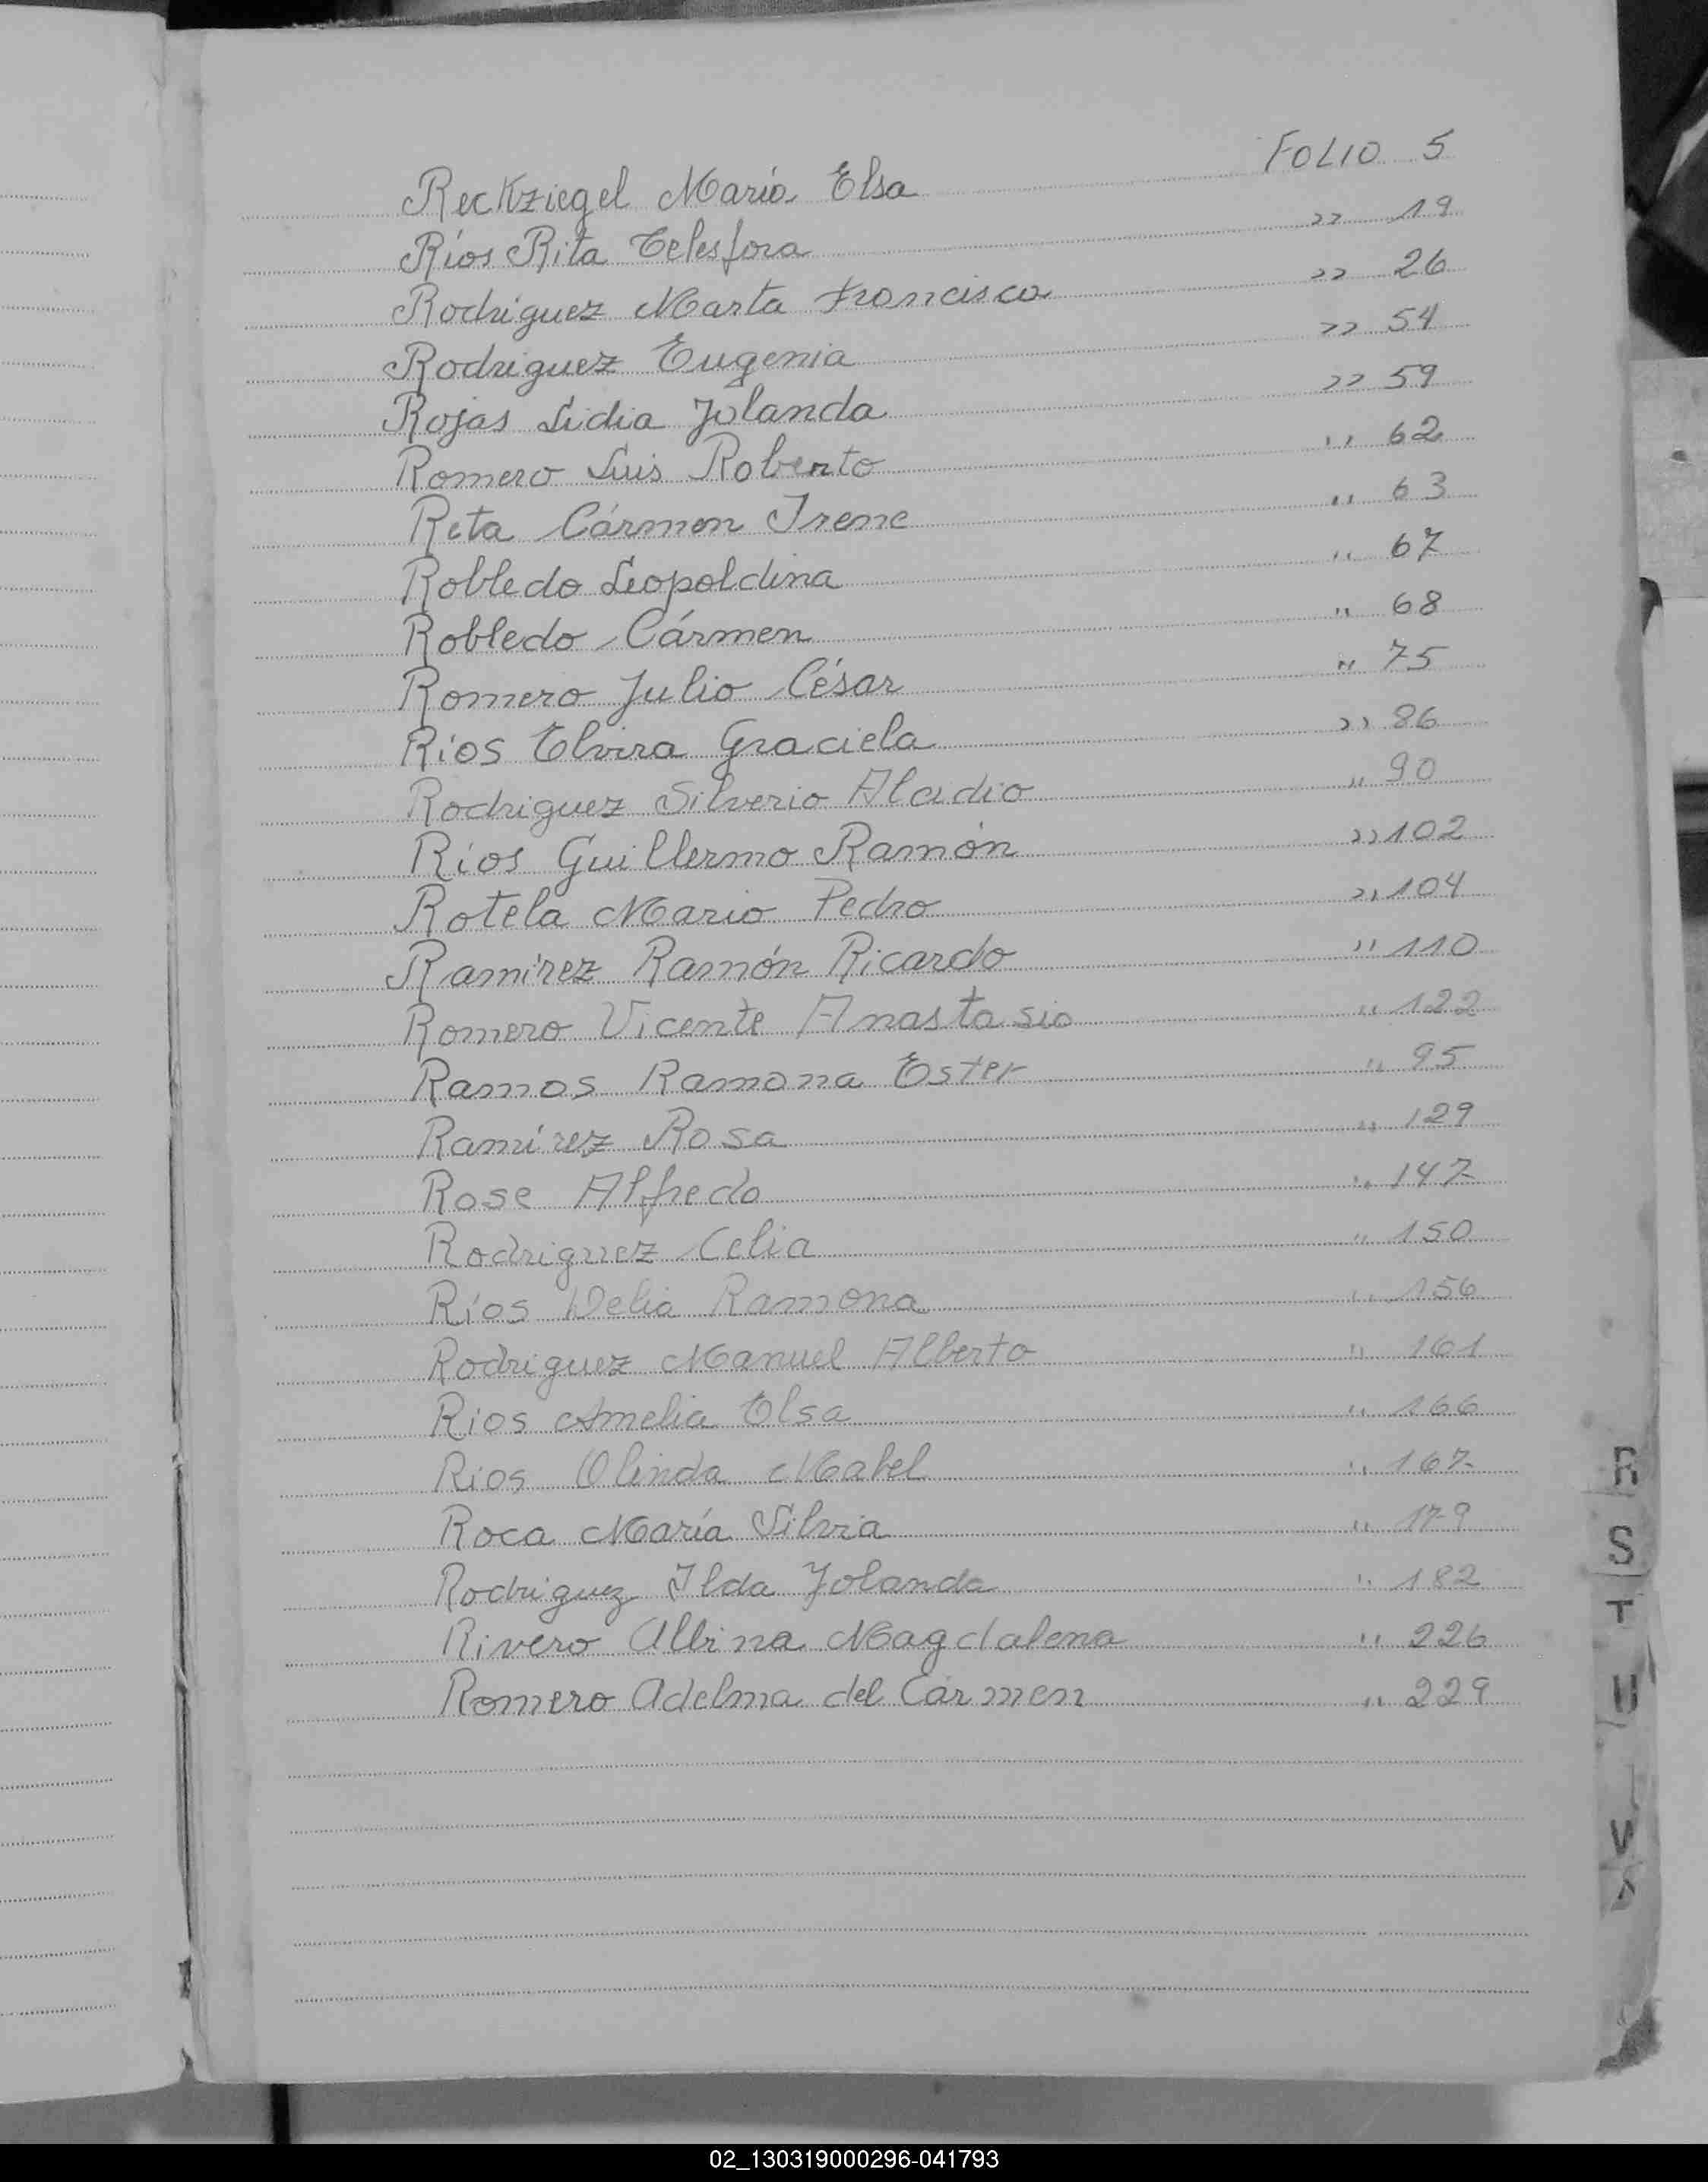 Reckziegel María Elsa FOLIO 5
Ríos Rita Telesfora " 19
Rodriguez Marta Francisca " 26
Rodriguez Eugenia " 54
Rojas Lidia Yolanda " 59
Romero Luis Roberto " 62
Reta Cármen Irene " 63
Robledo Leopoldina " 67
Robledo Cármen " 68
Romero Julio César " 75
Ríos Elvira Graciela " 86
Rodriguez Silverio Aladio " 90
Ríos Guillermo Ramón " 102
Rotela Mario Pedro " 104
Ramírez Ramón Ricardo " 110
Romero Vicente Anastasio " 122
Ramos Ramona Ester " 95
Ramírez Rosa " 129
Rose Alfredo " 147
Rodriguez Celia " 150
Ríos Delia Ramona " 156
Rodriguez Manuel Alberto " 161
Rios Amelia Elsa " 166
Rios Olinda Mabel " 167
Roca María Silvia " 179
Rodriguez Ilda Yolanda " 182
Rivero Albina Magdalena " 226
Romero Adelma del Carmen " 229
R
S
T
U
V
02_130319000296-041793